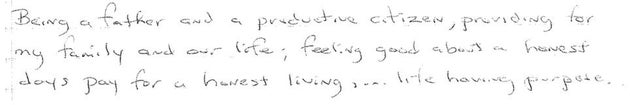 Being a father and a productive citizen, providing for
my family and our life; feeling good about a honest
days pay for a honest living, ... life having purpose.